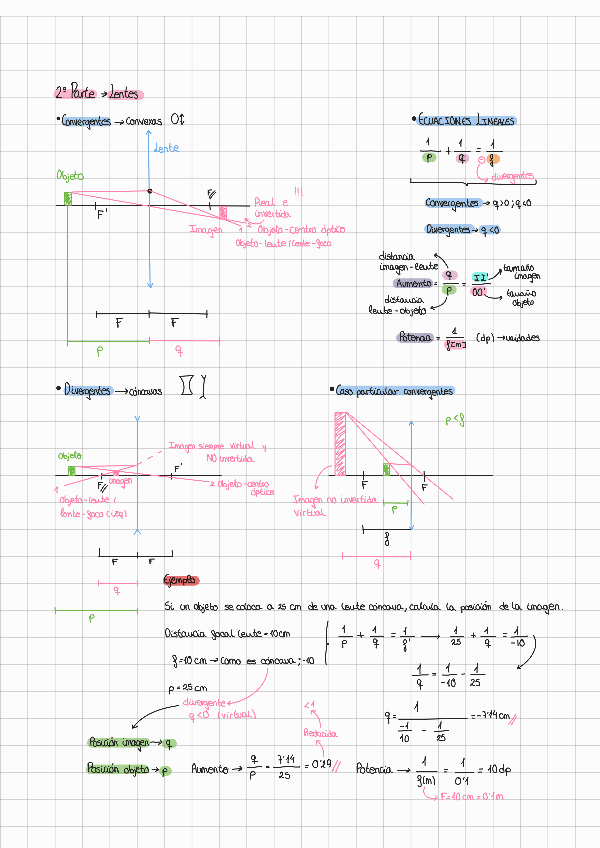 2ª Parte → Lentes
• Convergentes → convexas
Lente
Objeto
F'
F
Real e !!!
invertida
Imagen
1 2 Objeto-centro óptico
Objeto-lente/lente-foco
F F
p q
• ECUACIONES LINEALES
1/p + 1/q = 1/f
divergentes
Convergentes → q>0; q<0
Divergentes → q<0
distancia
imagen-lente
Aumento = q/p = II'/OO'
tamaño
imagen
tamaño
objeto
distancia
lente-objeto
Potencia = 1/f[m] (dp) → unidades
• Divergentes → cóncavas
Objeto
Imagen siempre virtual y
NO invertida
F'
imagen
F
1
2 Objeto-centro
óptico
Objeto-lente/
lente-foco (izq)
F F
q
p
• Caso particular convergentes
p<f
F F
Imagen no invertida
virtual
p
f
q
Ejemplo
Si un objeto se coloca a 25 cm de una lente cóncava, calcula la posición de la imagen.
Distancia focal lente = 10cm
f=10 cm → como es cóncava; -10
p = 25 cm
divergente
q<0 (virtual)
1/p + 1/q = 1/f' → 1/25 + 1/q = 1/-10
1/q = 1/-10 - 1/25
q = 1/(-1/10 - 1/25) = -7'14cm
Posición imagen → q
Posición objeto → p
<1
Reducida
Aumento → q/p = 7'14/25 = 0'29
Potencia → 1/f(m) = 1/0'1 = 10 dp
F=10 cm = 0'1m